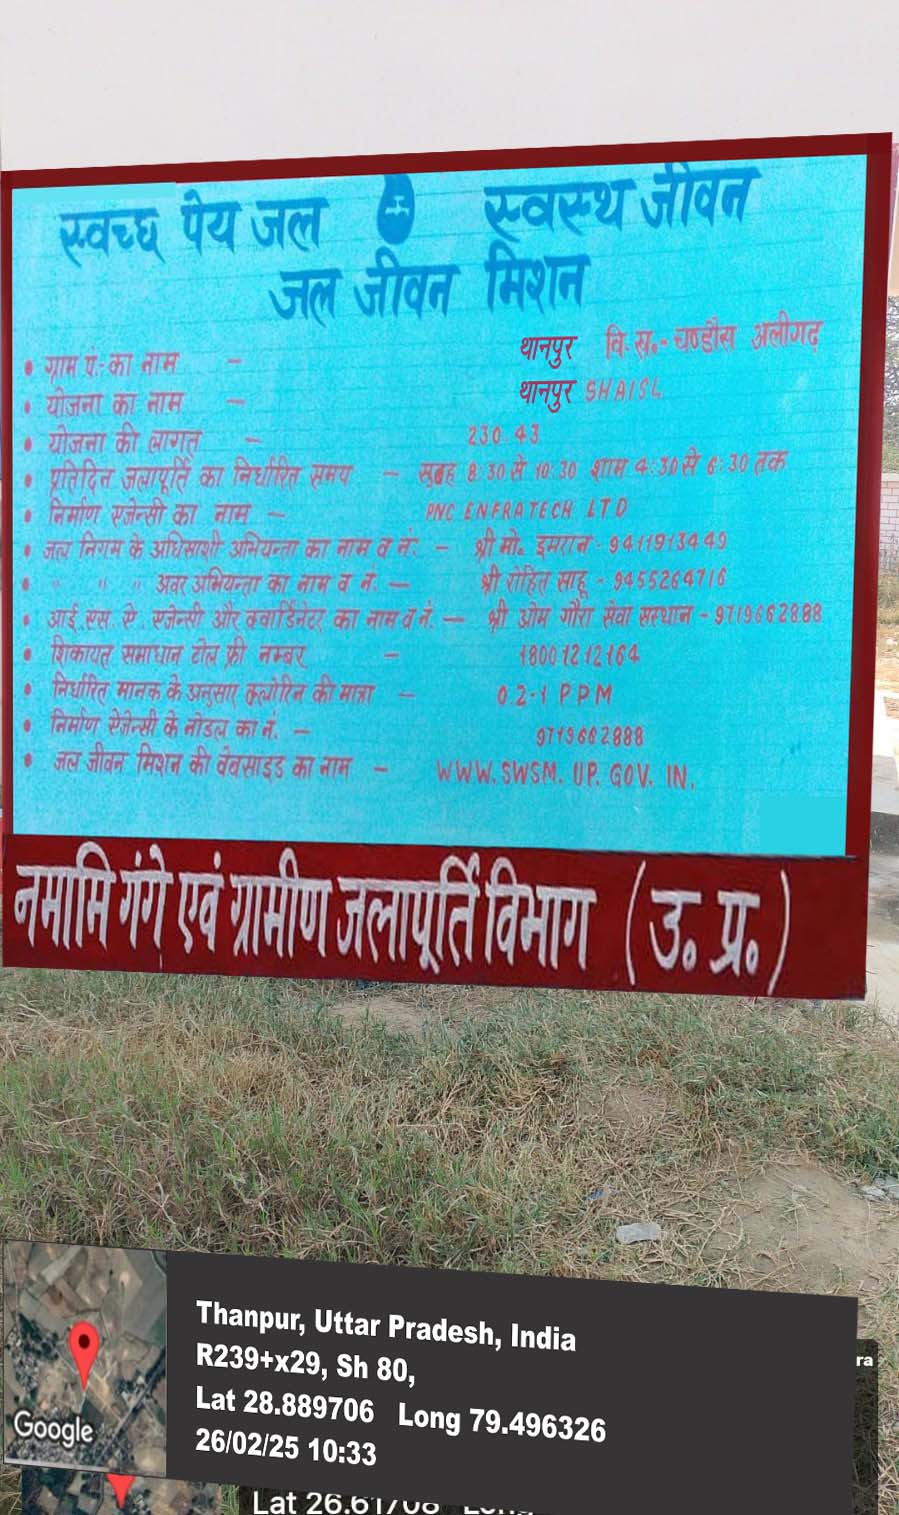 स्वच्छ पेय जल स्वस्थ जीवन
जल जीवन मिशन
• ग्राम पं.-का नाम - थानपुर वि. स.- चण्डौस अलीगढ़
• योजना का नाम - थानपुर SHAISL
• योजना की लागत - 230.43
• प्रतिदिन जलापूर्ति का निर्धारित समय - सुबह 8:30 से 10:30 शाम 4:30 से 6:30 तक
• निर्माण एजेन्सी का नाम - PNC ENFRATECH LTD
• जल निगम के अधिसाशी अभियन्ता का नाम व नं: - श्री मो. इमरान - 9411913449
• " " " अवर अभियन्ता का नाम व नं. - श्री रोहित साहू - 9455264716
• आई.एस.ए. एजेन्सी और क्वार्डिनेटर का नाम व नं. - श्री ओम गौरा सेवा सस्थान - 9719662888
• शिकायत समाधान टोल फ्री नम्बर - 18001212164
• निर्धारित मानक के अनुसार क्लोरिन की मात्रा - 0.2-1 PPM
• निर्माण ऐजेन्सी के नोडल का नं. - 9719662888
• जल जीवन मिशन की वेबसाइड का नाम - WWW.SWSM.UP.GOV.IN.
नमामि गंगे एवं ग्रामीण जलापूर्ति विभाग (उ. प्र.)
Thanpur, Uttar Pradesh, India
R239+x29, Sh 80,
Lat 28.889706 Long 79.496326
26/02/25 10:33
Google
ra
Lat 26.61708